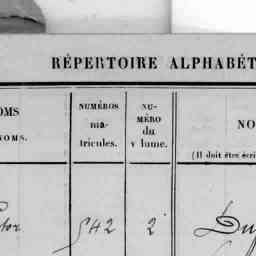 RÉPERTOIRE ALPHABÉT
OMS
NOMS.
NUMÉROS
ma-
tricules.
NU-
MÉRO
du
v lume.
NO
(Il doit être écri
ctor
542
2
Du